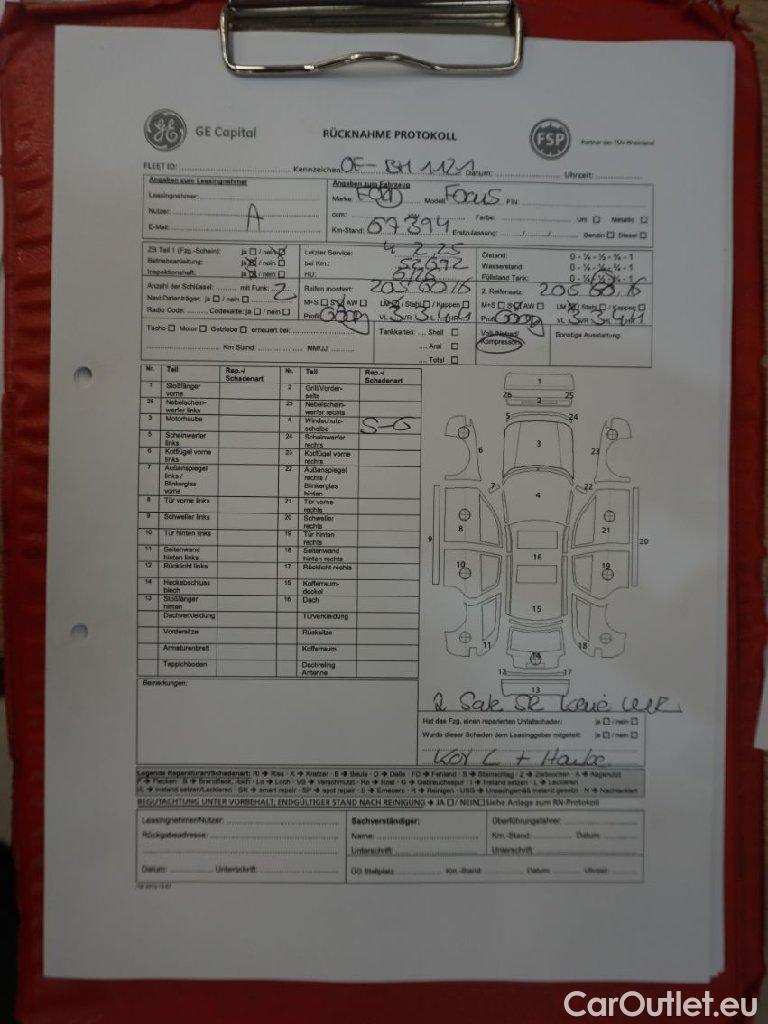 GE Capital
RÜCKNAHME PROTOKOLL
FSP
Partner des TÜV Rheinland
FLEET ID: Kennzeichen: OF-BH 1121 Datum: Uhrzeit:
Angaben zum Leasingnehmer
Leasingnehmer:
Nutzer: A
E-Mail:
Angaben zum Fahrzeug
Marke: FORD Modell: FOCUS FIN:
ccm: kW: Farbe: Uni Metallic
Km-Stand: 67394 Erstzulassung: Benzin Diesel
ZB Teil 1 (Fzg.-Schein): ja / nein
Betriebsanleitung: ja / nein
Inspektionsheft: ja / nein
Letzter Service: 4 2.25
bei Km.:
HU:
Ölstand: 0 - ¼ - ½ - ¾ - 1
Wasserstand 0 - ¼ - ½ - ¾ - 1
Füllstand Tank: 0 - ¼ - ½ - ¾ - 1
Anzahl der Schlüssel: mit Funk: 2
Navi Datenträger: ja / nein
Radio Code: Codekarte: ja / nein
Reifen montiert: 205 60 16
M+S SW AW LM / Stahl / Kappen
Profil VL VR HL HR
2. Reifensatz: 205 60 16
M+S SW AW LM Stahl / Kappen
Profil VL VR HL HR
Tacho Motor Getriebe erneuert bei:
Km Stand: MM/JJ
Tankkarten: Shell
Aral
Total
Voll-/Notrad/
Kompressor
Sonstige Ausstattung:
Nr. Teil Rep.-/ Schadenart Nr. Teil Rep.-/ Schadenart
1 Stoßfänger vorne 2 Grill/Vorderseite
26 Nebelscheinwerfer links 25 Nebelscheinwerfer rechts
3 Motorhaube 4 Windschutzscheibe S-G
5 Scheinwerfer links 24 Scheinwerfer rechts
6 Kotflügel vorne links 23 Kotflügel vorne rechts
7 Außenspiegel links / Blinkerglas vorne 22 Außenspiegel rechts / Blinkerglas hinten
8 Tür vorne links 21 Tür vorne rechts
9 Schweller links 20 Schweller rechts
10 Tür hinten links 19 Tür hinten rechts
11 Seitenwand hinten links 18 Seitenwand hinten rechts
12 Rücklicht links 17 Rücklicht rechts
14 Heckabschluss blech 15 Kofferraumdeckel
13 Stoßfänger hinten 16 Dach
Dachverkleidung Türverkleidung
Vordersitze Rücksitze
Armaturenbrett Kofferraum
Teppichboden Dachreling Antenne
1
26 2 25
5 24
3
6 23
7 22
4
8 21
9 20
16
10 19
15
11 18
14
12 17
13
Bemerkungen:
2. Satz SR keine
Hat das Fzg. einen reparierten Unfallschaden: ja / nein
Wurde dieser Schaden dem Leasinggeber mitgeteilt: ja / nein
+ Haube
Legende Reparaturart/Schadenart: RI → Riss - K → Kratzer - B → Beule - D → Delle - FD → Fehlend - S → Steinschlag - Z → Zerbrochen - A → Abgenutzt
BEGUTACHTUNG UNTER VORBEHALT; ENDGÜLTIGER STAND NACH REINIGUNG → JA / NEIN Siehe Anlage zum RN-Protokoll
Leasingnehmer/Nutzer:
Rückgabeadresse:
Datum: Unterschrift:
Sachverständiger:
Name:
Unterschrift:
Überführungsfahrer:
Km.-Stand: Datum:
Unterschrift
GG Stellplatz Km.-Stand: Datum: Uhrzeit:
CarOutlet.eu